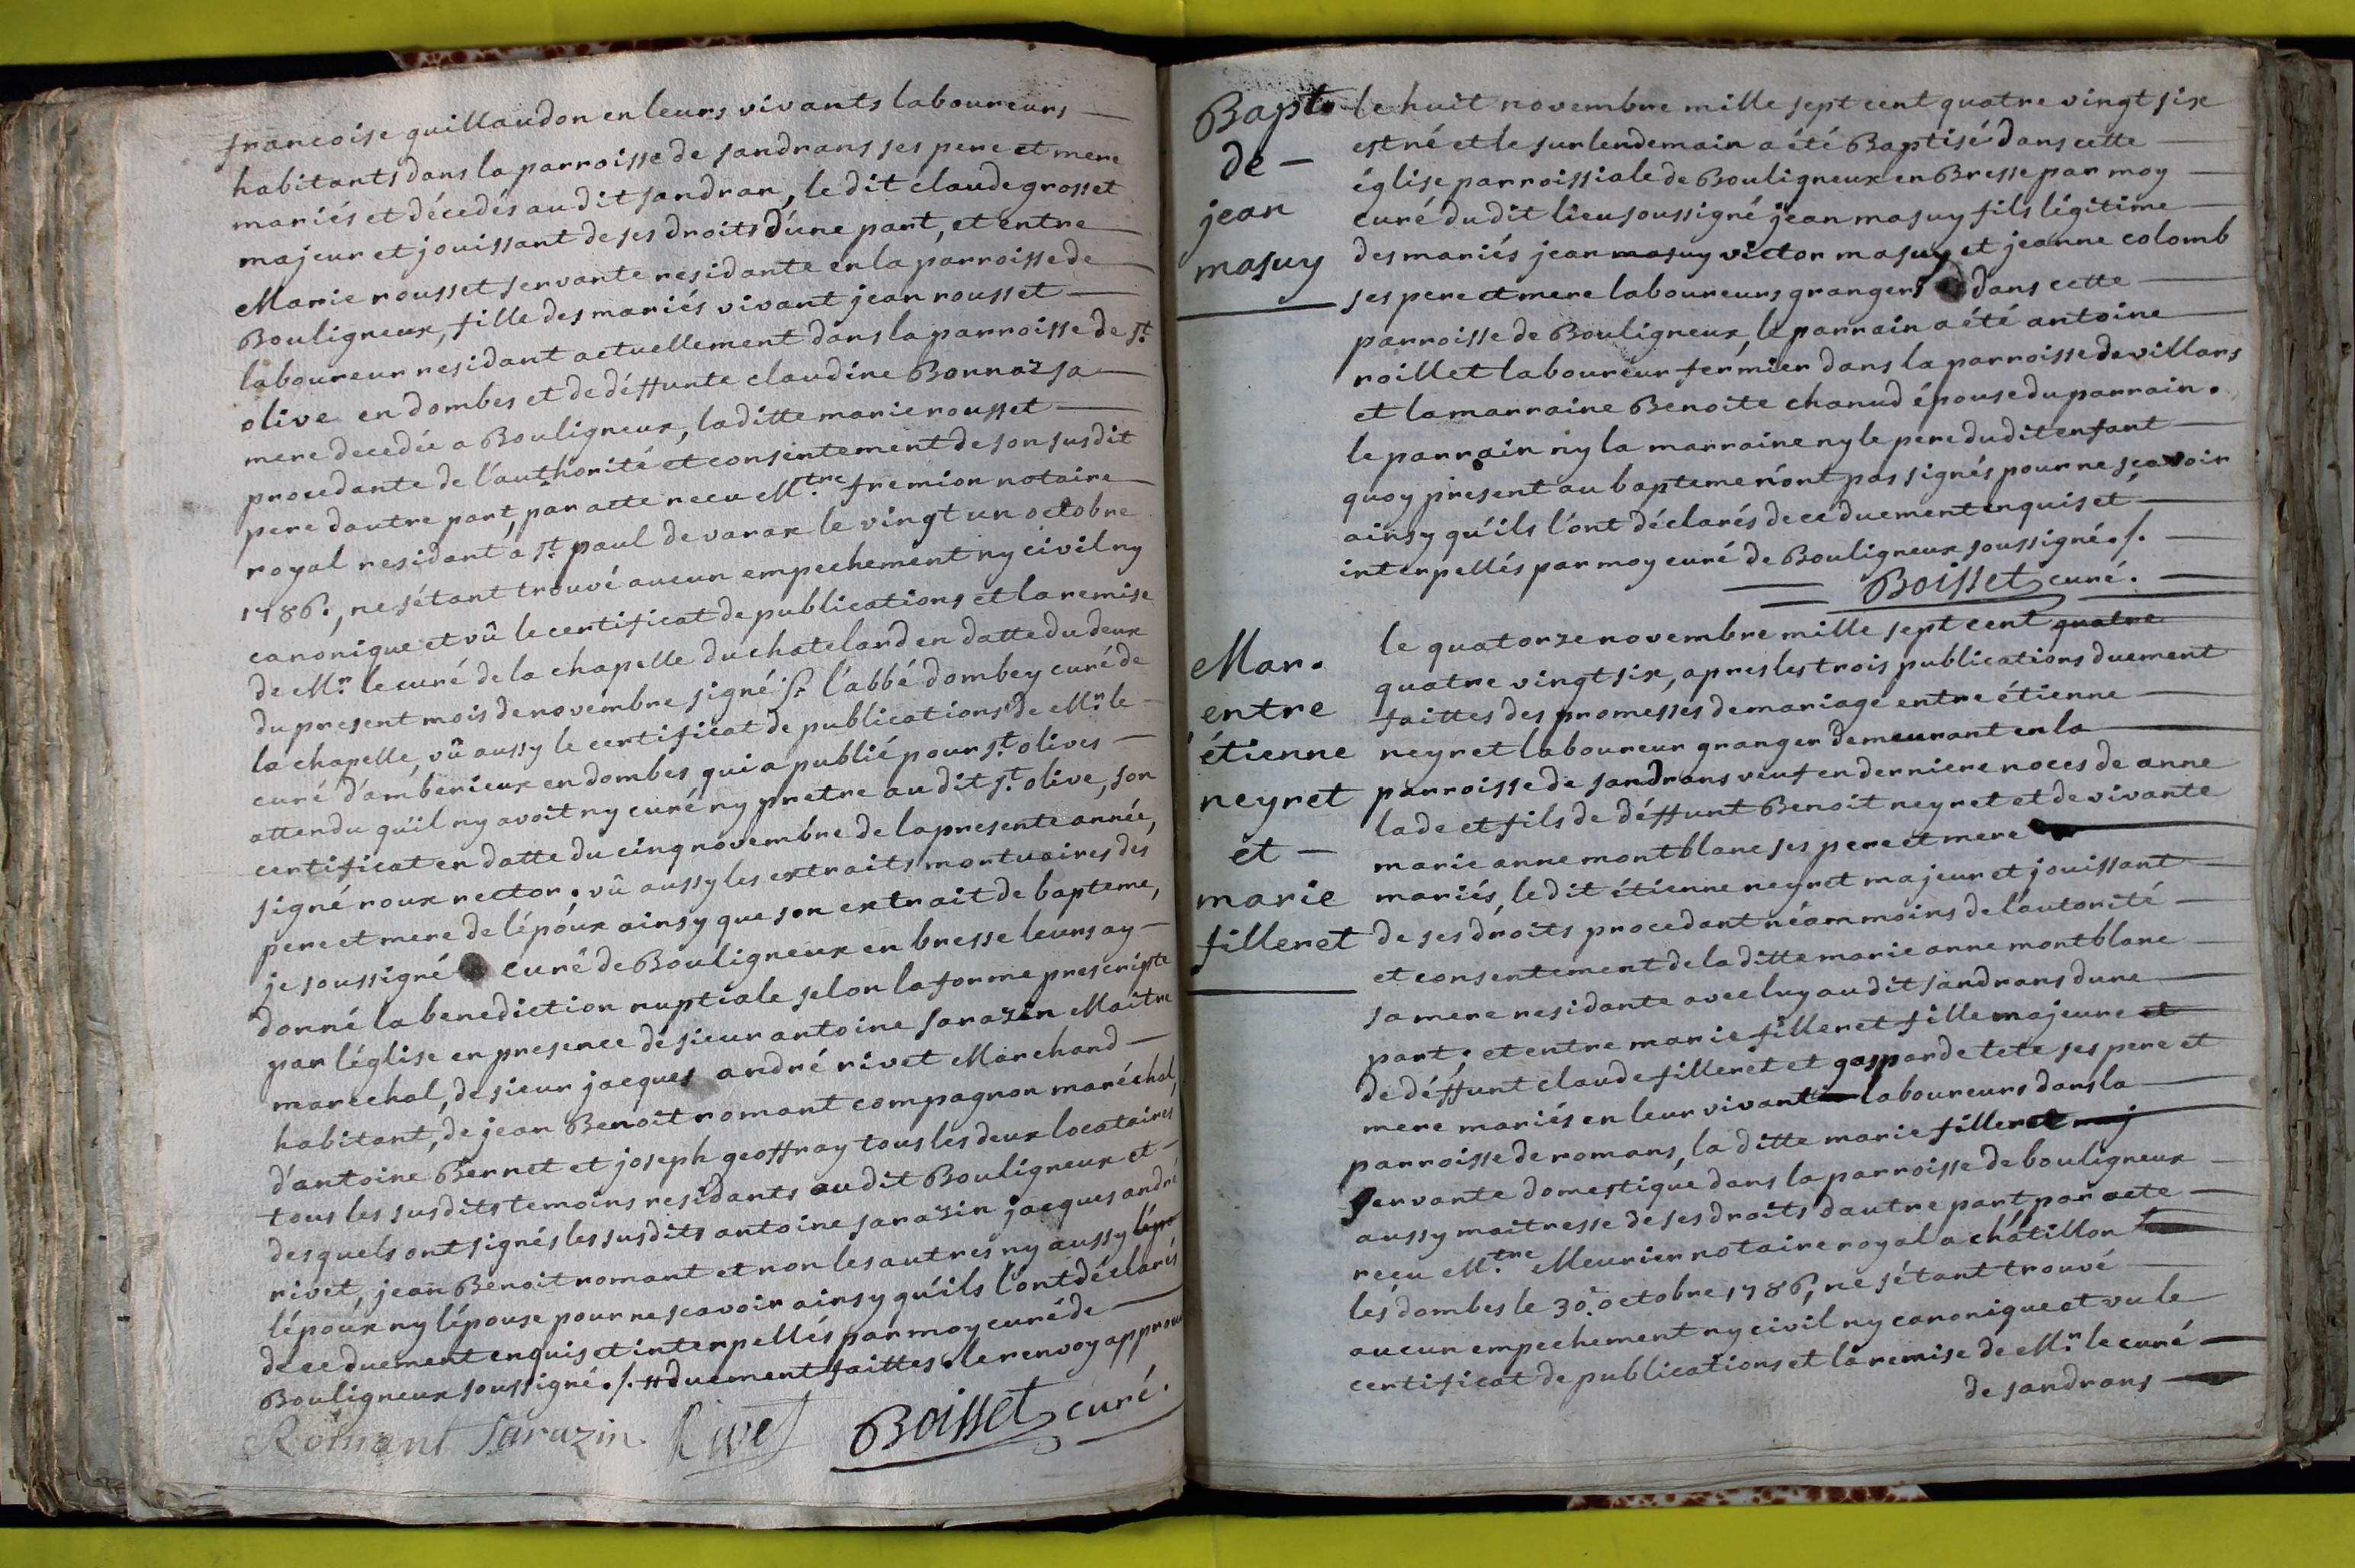 francoise guillaudon en leurs vivants laboureurs
habitants dans la parroisse de sandrans ses pere et mere
mariés et décedés au dit sandran, le dit claude grosset
majeur et jouissant de ses droits d'une part, et entre
Marie rousset servante residante en la parroisse de
Bouligneux, fille des mariés vivant jean rousset
laboureur residant actuellement dans la parroisse de st.
olive en dombes et de déffunte claudine Bonnaz sa
mere decedée a Bouligneux, la ditte marie rousset
procedante de l'authorité et consentement de son susdit
pere dautre part, par acte recu Mtre. fremion notaire
royal residant a st. paul de varax le vingt un octobre
1786., ne s'étant trouvé aucun empechement ny civil ny
canonique et vû le certificat de publications et la remise
de Mr. le curé de la chapelle du chatelard en datte du deux
du present mois de novembre signé l'abbé dombey curé de
la chapelle, vû aussy le certificat de publications de Mr. le
curé d'amberieux en dombes qui a publié pour st. olives
attendu qu'il ny avoit ny curé ny pretre au dit st. olive, son
certificat en datte du cinq novembre de la presente année,
signé roux rector. vû aussy les extraits mortuaires des
pere et mere de l'époux ainsy que son extrait de bapteme,
je soussigné curé de Bouligneux en bresse leurs ay
donné la benediction nuptiale selon la forme prescripte
par léglise en presence de sieur antoine sarazin Maitre
marechal, de sieur jacques andré rivet Marchand
habitant, de jean Benoit romant compagnon maréchal,
d'antoine Bernet et joseph geoffray tous les deux locataires
tous les susdits temoins residants au dit Bouligneux et
desquels ont signés les susdits antoine sarazin jacques andré
rivet, jean Benoit romant et non les autres ny aussy lépo
lépoux ny lépouse pour ne scavoir ainsy qu'ils l'ont déclarés
de ce duement enquis et interpellés par moy curé de
Bouligneux soussigné ./. # duement faittes. le renvoy approuv
Romant Sarazin Rivet Boisset curé.
Bapt.
de
jean
masuy
le huit novembre mille sept cent quatre vingt six
est né et le surlendemain a été Baptisé dans cette
église parroissiale de Bouligneux en Bresse par moy
curé du dit lieu soussigné jean masuy fils légitime
des mariés jean masuy victor masuy et jeanne colomb
ses pere et mere laboureurs grangers dans cette
parroisse de Bouligneux, le parrain a été antoine
roillet laboureur fermier dans la parroisse de villars
et la marraine Benoite chanud épouse du parrain.
le parrain ny la marraine ny le pere du dit enfant
quoy present au bapteme n'ont pas signés pour ne scavoir
ainsy qu'ils l'ont déclarés de ce duement enquis et
interpellés par moy curé de Bouligneux soussigné ./.
Boisset curé.
Mar.
entre
étienne
neyret
et
marie
filleret
le quatorze novembre mille sept cent quatre
quatre vingt six, apres les trois publications duement
faittes des promesses de mariage entre étienne
neyret laboureur granger demeurant en la
parroisse de sandrans veuf en derniere noces de anne
lade et fils de déffunt Benoit neyret et de vivante
marie anne montblanc ses pere et mere
mariés, le dit étienne neyret majeur et jouissant
de ses droits procedant néammoins de l'autorité
et consentement de la ditte marie anne montblanc
sa mere residante avec luy au dit sandrans dune
part; et entre marie filleret fille majeure et
de déffunt claude filleret et gasparde tete ses pere et
mere mariés en leur vivant laboureurs dans la
parroisse de romans, la ditte marie filleret maj
servante domestique dans la parroisse de bouligneux
aussy maitresse de ses droits dautre part, par acte
recu Mtre. Meurier notaire royal a chátillon
lés dombes le 30. octobre 1786, ne s'étant trouvé
aucun empechement ny civil ny canonique et vu le
certificat de publications et la remise de Mr. le curé
de sandrans